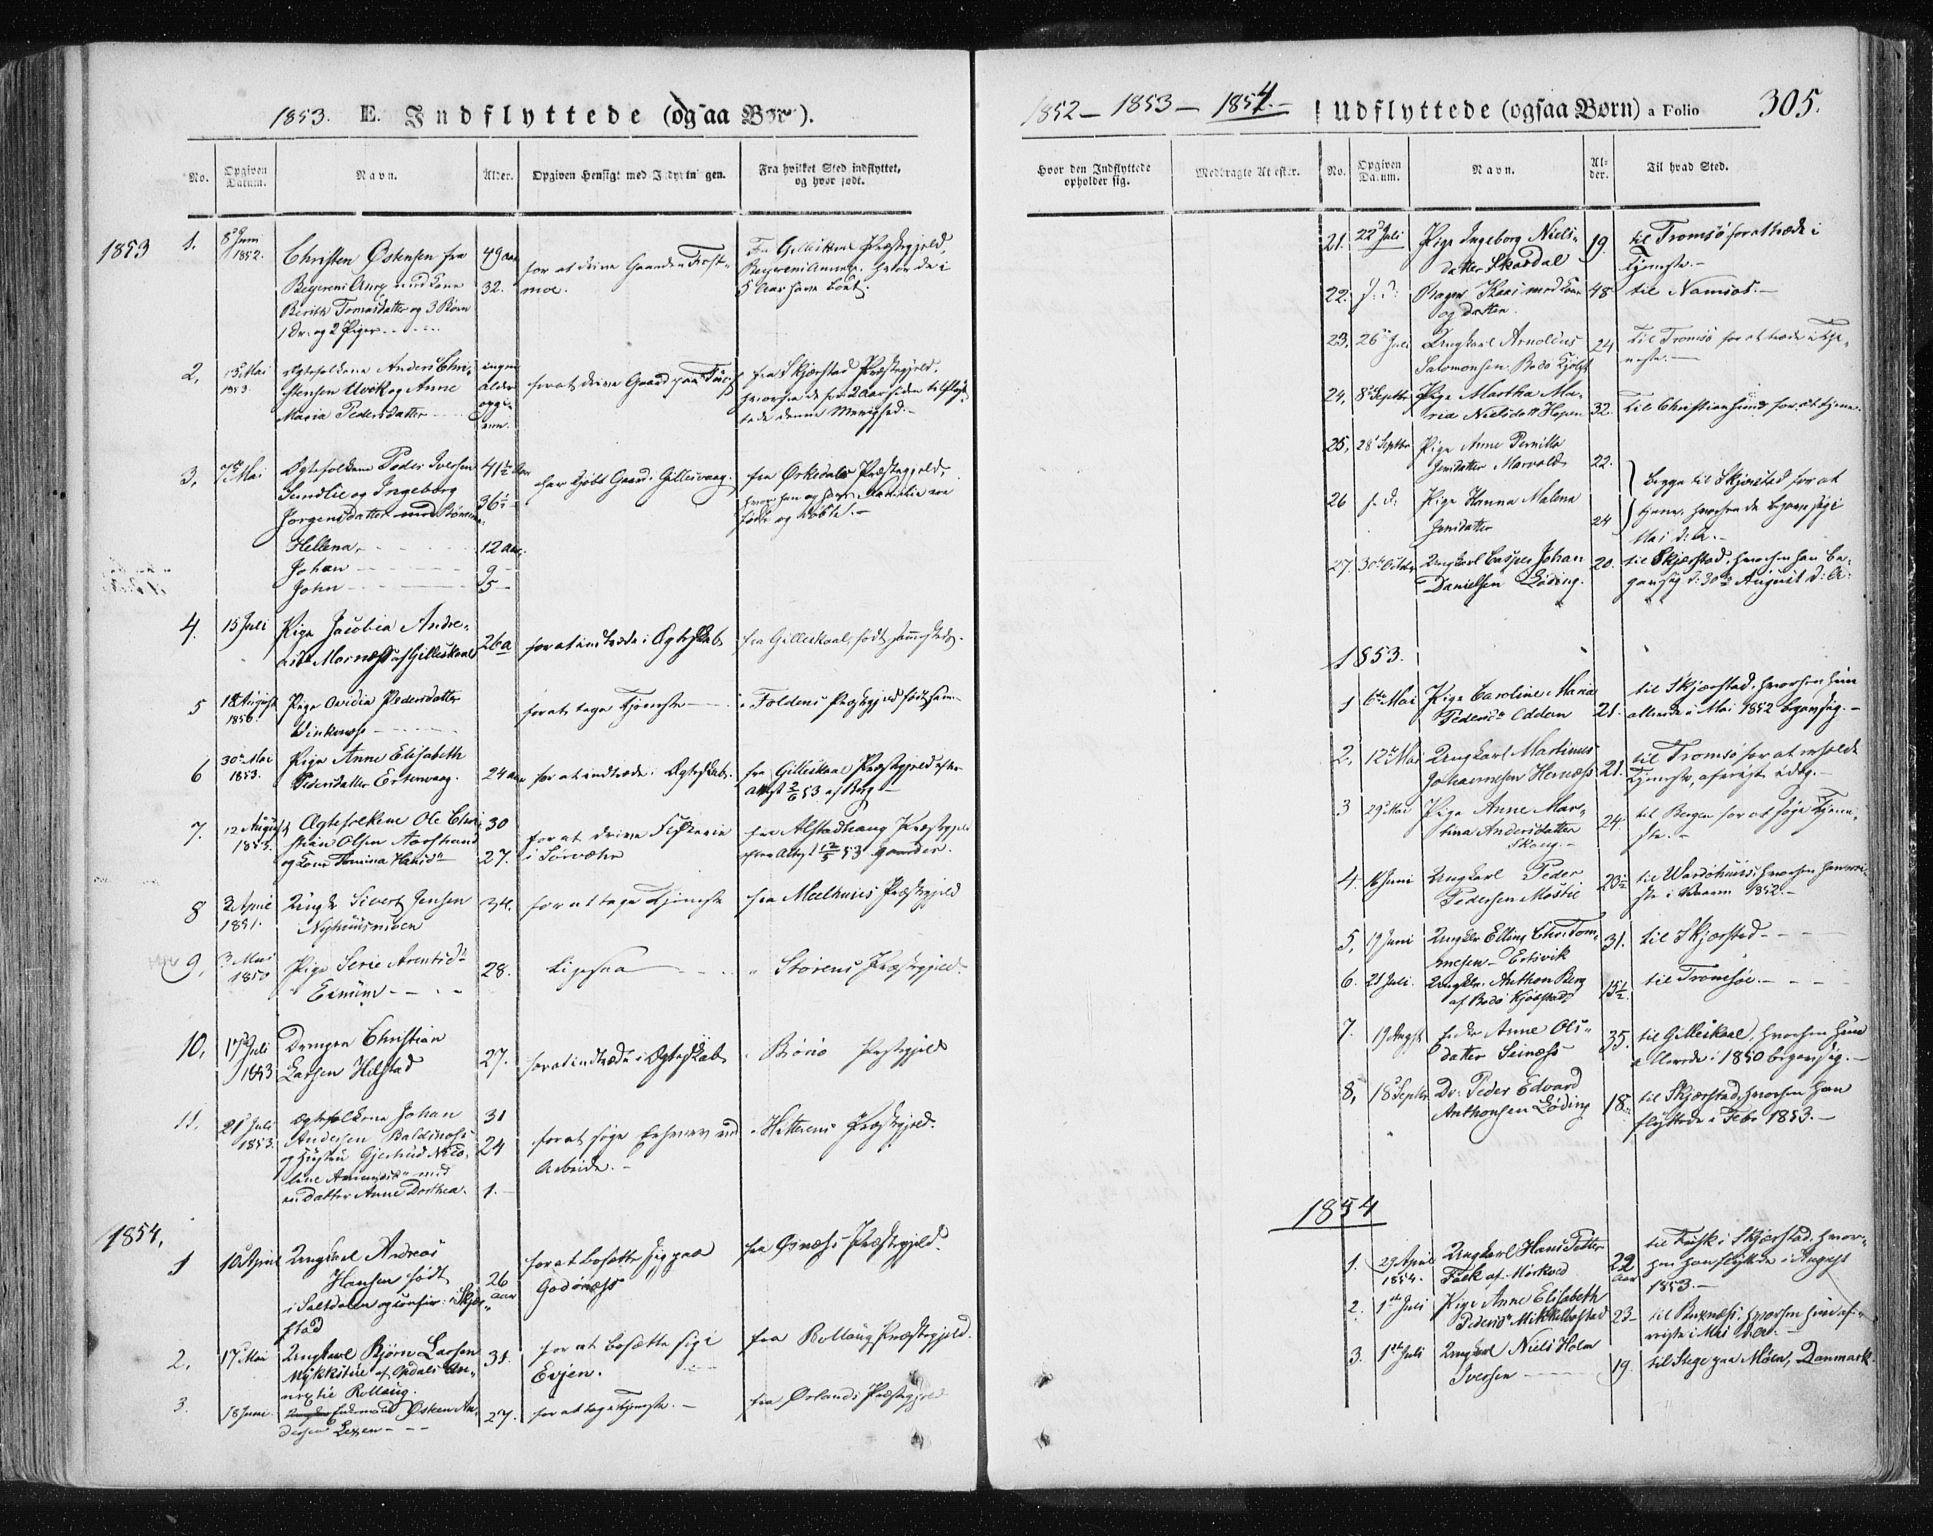 1853. E. Indflyttede (ogsaa Børn).
No.
Opgiven Datum.
Navn.
Alder.
Opgiven Hensigt med Indflytningen.
Fra hvilket Sted indflyttet,
og hvor født.
1853
1.
8de Juni
1852.
Christen Østensen fra
Beyerens Anex med Kone
Berith Tomasdatter og 3 Børn
1 Dr. og 2 Piger
49 aar
32.
for at drive Gaarden
Præstegjeld,
Beyerens Annex, hvor de i
5 Aar have boet.
2,
15 Mai
1853
Ægtefolkene Anders Chri-
stensen Uvik og Anne
Maria Pedersdatter
ingen
Alder
opgi-
ven.
for at drive Gaard paa
fra Skjærstad Præstegjeld,
hvorfra de for 2 Aar siden tilflyt-
tede denne Menighed.
3,
7de Mai
Ægtefolkene Peder Iversen
Sundlie og Ingeborg
Jørgensdatter med Børnene
Hellena
Johan
John
41½ Aar
36½
12 aar
9
5
har kjøbt Gaard. Gillesvaag.
fra Ørkedals Præstegjeld,
hvor han og hans Familie ere
fødte og døbte.
4.
15 Juli
Pige Jacobea Andre-
Mornæss af Gilleskaal
26 a
for at indtræde i Ægteskab.
fra Gilleskaal, født sammesteds.
5
18 August
1856.
Pige Ovidia Pedersdatter
Vinkenes
for at tage Tjeneste
i Foldens Præstegjeld født sam-
6
30te Mai
1853.
Pige Anne Elisabeth
Pedersdatter Ertenvaag.
24 aar
for at indtræde i Ægteskab.
fra Gilleskaal Præstegjeld efter
Attest 2/6 53 af Berg
7.
12 August
1853.
Ægtefolkene Ole Chri-
stian Olsen Aarstrand
og Kone Tomina Hansd.
30
27.
for at drive Fiskerie
i Sørvær
fra Alstadhaug Præstegjeld
12/5 53
8
2 April
1851.
Ungk. Sivert Jensen
Nyhuusmoen
34.
for at tage Tjeneste
fra Meelhuus Præstegjeld
9,
3 Mai
1850
Pige Serie Arentsd.
28.
Ligesaa
Størens Præstegjeld.
10,
17 Juli
1853
Drengen Christian
Larsen Hilstad
27.
for at indtræde i Ægteskab
Prstegjeld
11.
21 Juli
1853.
Ægtefolkene Johan
Andersen
og Hustru Gjertrud Nico-
line med
en datter Anne Dorthea.
31
24
1.
for at søge Erhverv ved
Arbeide.
Hitterens Præstegjeld.
1854.
1
10 April
Ungkarl Andreas
Hansen født
i Saltdalen og confir. i Skjær-
stad
26
aar
for at bosætte sig paa
Godønæss
fra Øxnæss Præstegjeld.
2.
17 Mai
Ungkarl Bjørn Larsen
Mykkstue af Opdals An-
nex til Rollaug.
31.
for at bosætte sig i
Evjen.
fra Rollaug Præstegjeld.
3.
18 Juni
Enkemand Østen An-
dersen
27.
for at tage Tjeneste.
fra Ørlands Præstegjeld
1852 – 1853 – 1854.
Udflyttede (ogsaa Børn) a Folio 305.
Hvor den Indflyttede
opholder sig.
Medbragte Attester.
No.
Opgiven Datum.
Navn.
Al-
der.
Til hvad Sted.
21.
22 Juli
Pige Ingeborg Niels-
datter Skardal
19.
til Tromsø for at træde i
Tjeneste.
22.
s. d.
med Kone
og datter.
48
til Namsos.
23,
26 Juli
Ungkarl Arnoldus
Salomonsen. Bodø Kjøbst.
24
Til Tromsø for at træde i Tje-
neste.
24,
8de Septbr
Pige Martha Ma-
ria Nielsdatt Hopen
32.
til Christiansund for at tjene.
25,
28 Septbr
Pige Anne Pernilla
Jensdatter
22.
26
s. d.
Pige Hanna Malena
Jensdatter
24
begge til Skjerstad for at
tjene, hvorhen de begave sig i
Mai d. A.
27.
30te October
Ungkarl Casper Johan
Danielsen Løding.
20.
til Skjærstad, hvorhen han be-
gav sig d. 30te August d. A.
1853.
1
6te Mai
Pige Caroline Maria
Pedersd. Oddan
21.
til Skjærstad, hvorhen hun
allerede i Mai 1852 begav sig.
2.
12te Mai
Ungkarl Martinus
Johannesen Hernæss
21.
til Tromsø for at erholde
Tjeneste, afreist idag.
3
29 Mai
Pige Anne Mar-
tina Andersdatter
Skoug.
24.
til Bergen for at søge Tjene-
ste.
4
Juni
Ungkarl Peder
Pedersen
23½
til Wardöhuus, hvorhen han rei-
ste i Vaaren 1852.
5,
19 Juni
Ungkr Elling Chr. Tom-
mesen Ertivik
31.
til Skjærstad
6.
21 Juli.
Ungkr. Anthon Berg
af Bodø Kjøbstad
15½
til Tromsøe.
7.
19 Augst
Anne Ols-
datter Seinæss
35.
til Gilleskaal, hvorhen hun
allerede i 1850 begav sig.
8,
18 Septbr
Dr. Peder Edvard
Anthonsen Løding
18.
til Skjærstad, hvorhen han
flyttede i Febr 1853.
1854
1.
23 April
1854.
Ungkarl Hans Petter
Falk af Mørkved
22
aar
til Fuske i Skjærstad, hvor-
hen han flyttede i August
1853.
2.
1ste Juli
Pige Anne Elisabeth
Pedersd. Mikkelbostad
23
til Buxnæss, hvorhen hun af-
reiste i Mai d. A.
3.
1ste Juli
Ungkarl Niels Holm
Iversen
19.
til Stege paa Møen, Danmark.